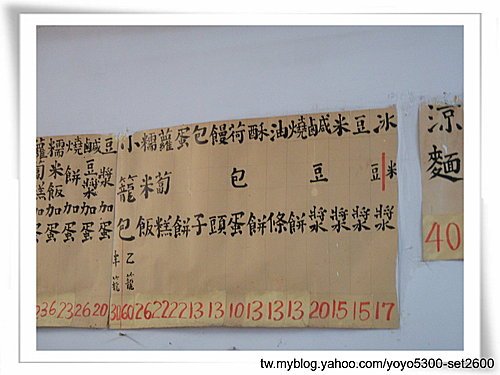 涼麵 40
冰豆米漿 17
豆漿 15
米漿 15
鹹豆漿 20
燒餅 13
油條 13
酥餅 13
荷包蛋 10
饅頭 13
包子 13
蛋餅 22
蘿蔔糕 22
糯米飯 26
小籠包 乙籠 60 半籠 30
豆漿加蛋 20
鹹豆漿加蛋 26
燒餅加蛋 23
糯米飯加蛋 36
蘿蔔糕加蛋
tw.myblog.yahoo.com/yoyo5300-set2600